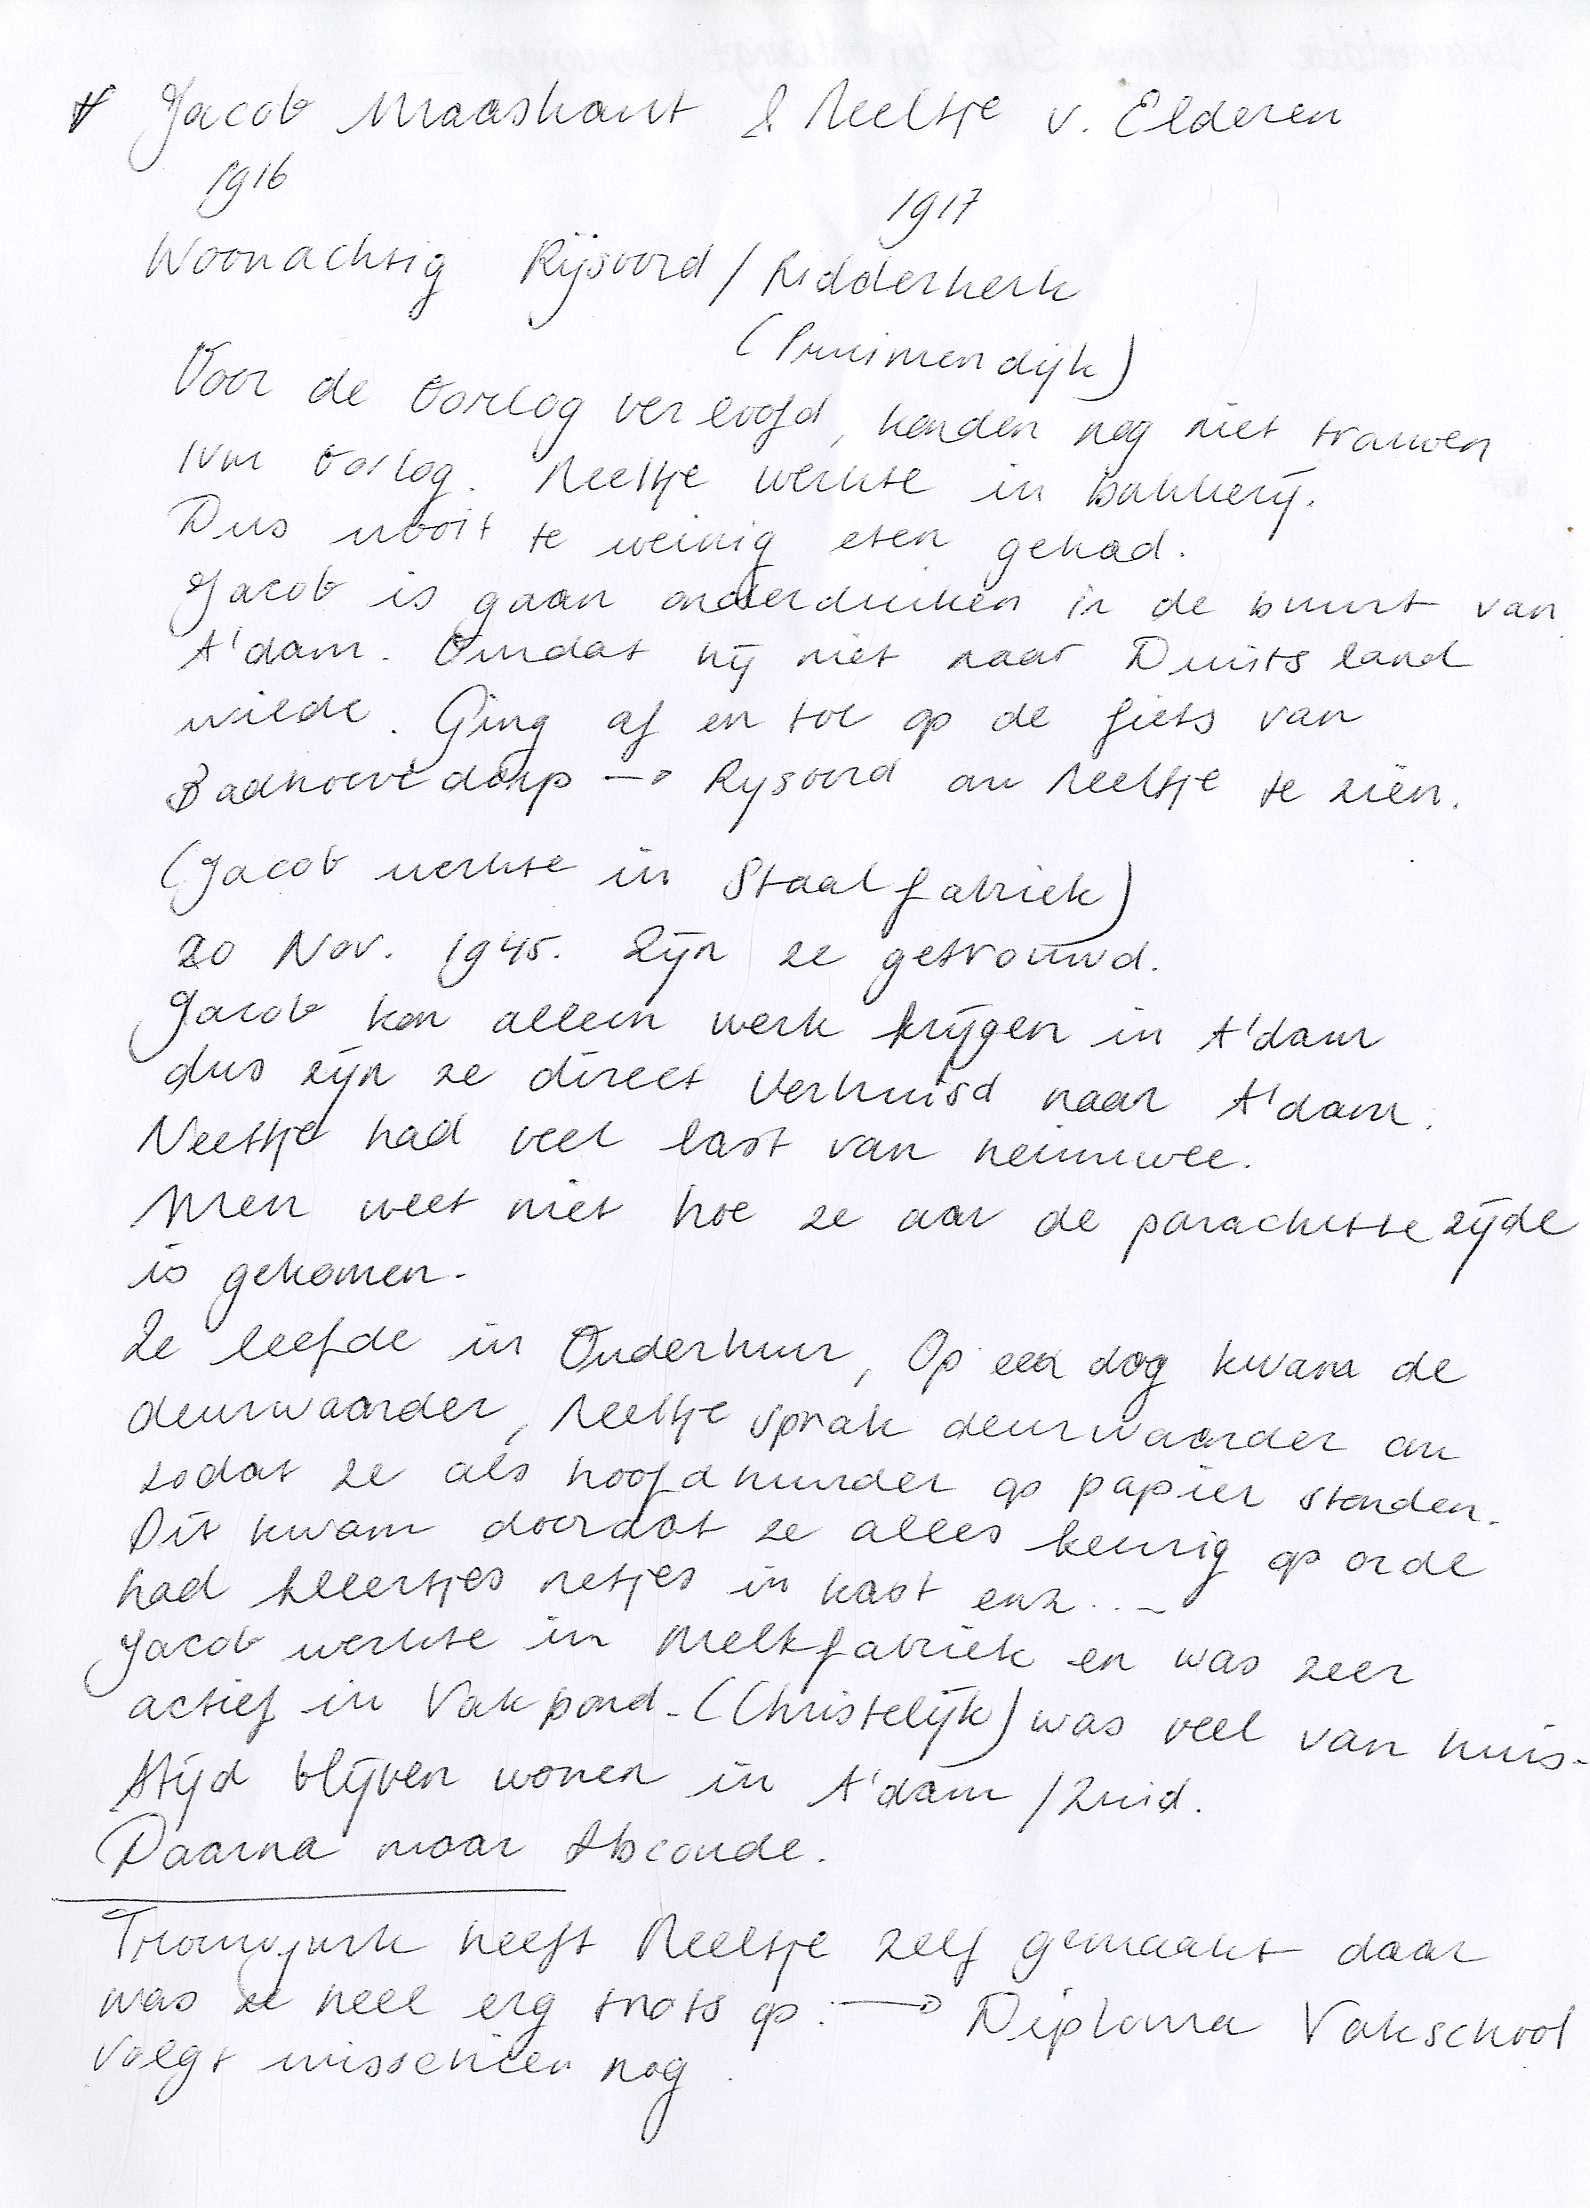 Jacob Maaskant & Neeltje v. Elderen
1916
1917
Woonachtig Rijsoord / Ridderkerk
(Pruimendijk)
Voor de Oorlog verloofd, konden nog niet trouwen
ivm Oorlog. Neeltje werkte in Bakkerij.
Dus nooit te weinig eten gehad.
Jacob is gaan onderduiken in de buurt van
A'dam. Omdat hij niet naar Duitsland
wilde. Ging af en toe op de fiets van
Badhoevedorp → Rijsoord om Neeltje te zien.
(Jacob werkte in Staalfabriek)
20 Nov. 1945. Zijn ze getrouwd.
Jacob kon alleen werk krijgen in A'dam
dus zijn ze direct verhuisd naar A'dam.
Neeltje had veel last van heimwee.
Men weet niet hoe ze aan de parachutte zijde
is gekomen.
Ze leefde in Onderhuur, Op een dag kwam de
deurwaarder, Neeltje sprak deurwaarder om
zodat ze als hoofdhuurder op papier stonden.
Dit kwam doordat ze alles keurig op orde
had kleertjes netjes in kast enz...
Jacob werkte in Melkfabriek en was zeer
actief in Vakbond - (Christelijk) was veel van huis -
Altijd blijven wonen in A'dam / Zuid.
Daarna naar Abcoude.
Trouwjurk heeft Neeltje zelf gemaakt daar
was ze heel erg trots op. → Diploma Vakschool
volgt misschien nog.